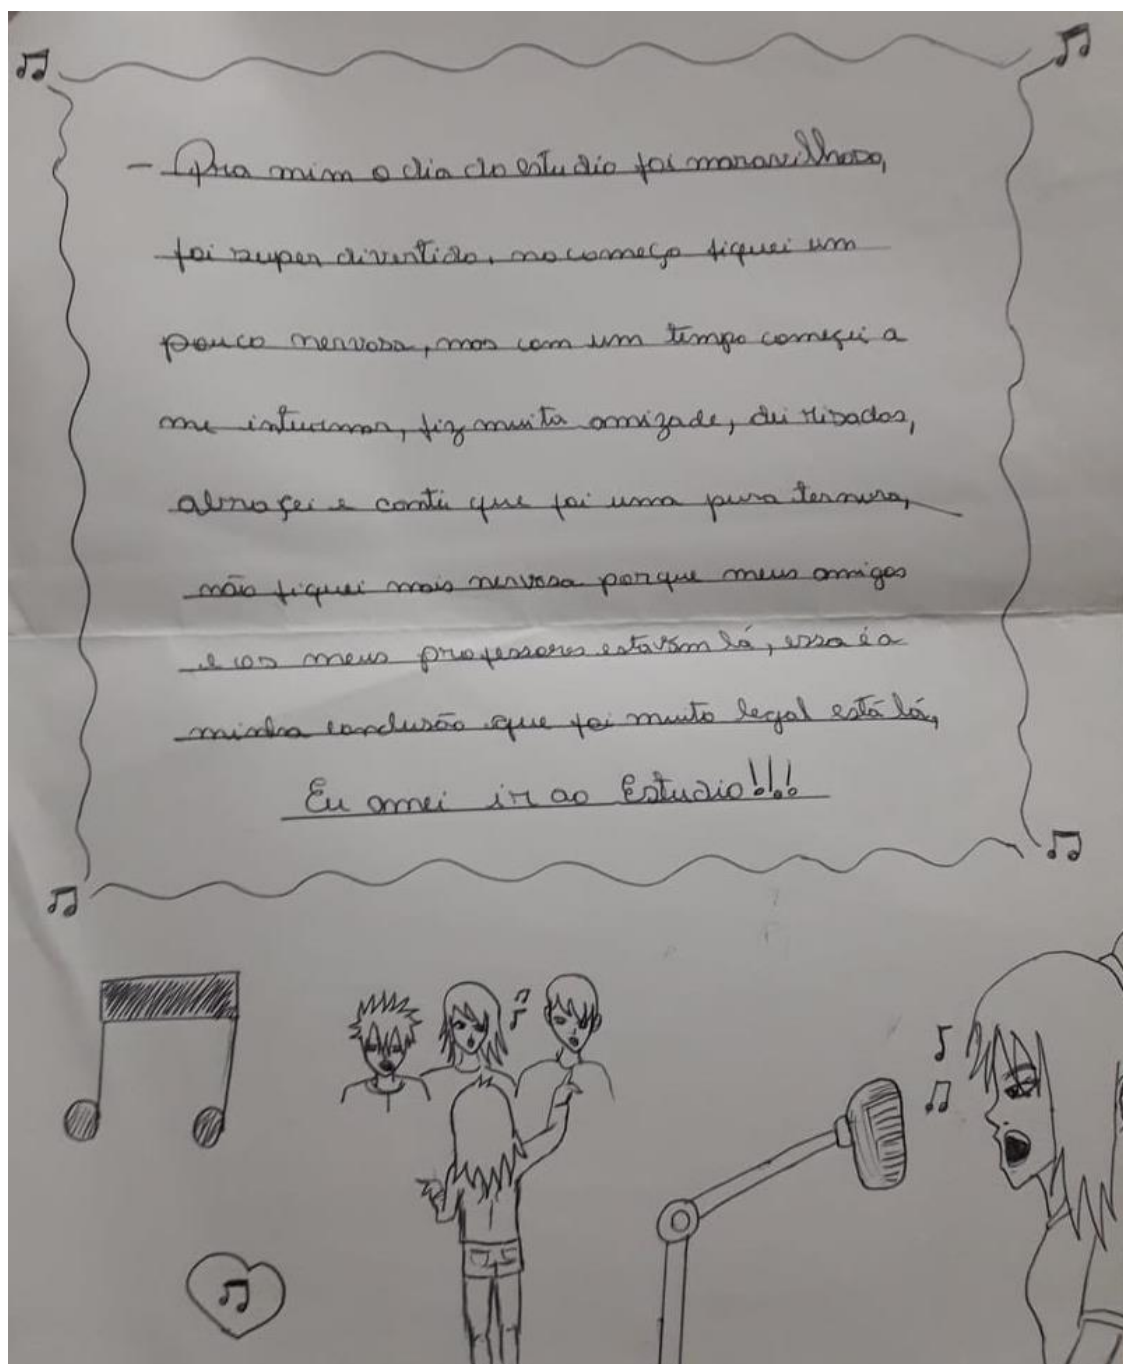 - Pra mim o dia do estudio foi maravilhoso,
foi super divertido, no começo fiquei um
pouco nervosa, mas com um tempo começei a
me inturmar, fiz muita amizade, dei risadas,
abraçei e contei que foi uma pura ternura,
não fiquei mais nervosa porque meus amigos
e os meus professores estavam lá, essa é a
minha conclusão que foi muito legal está lá,
Eu amei ir ao Estudio!!!